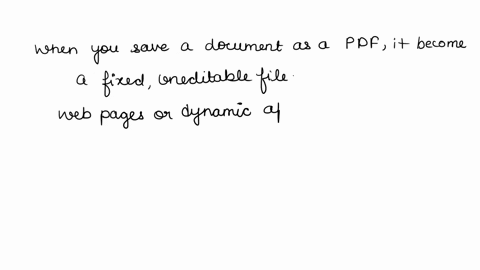 when you save a document as a PDF, it become
a fixed, uneditable file.
web pages or dynamic